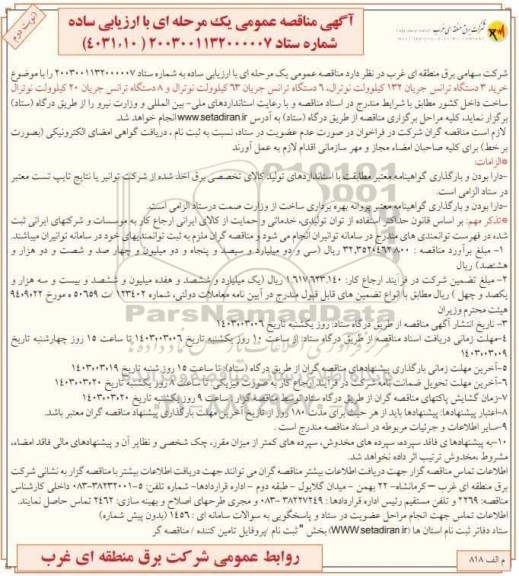 (نوبت دوم)
شرکت برق منطقه ای غرب
آگهی مناقصه عمومی یک مرحله ای با ارزیابی ساده
شماره ستاد ۲۰۰۳۰۰۱۱۳۲۰۰۰۰۰۷ (۴۰۳۱۰۱۰)
شرکت سهامی برق منطقه ای غرب در نظر دارد مناقصه عمومی یک مرحله ای با ارزیابی ساده به شماره ستاد ۲۰۰۳۰۰۱۱۳۲۰۰۰۰۰۷ را با موضوع
خرید ۳ دستگاه ترانس جریان ۱۳۲ کیلوولت نوترال، ۶ دستگاه ترانس جریان ۶۳ کیلوولت نوترال و ۸ دستگاه ترانس جریان ۲۰ کیلوولت نوترال
ساخت داخل کشور مطابق با شرایط مندرج در اسناد مناقصه و با رعایت استانداردهای ملی- بین المللی و وزارت نیرو را از طریق درگاه (ستاد)
برگزار نماید، کلیه مراحل برگزاری مناقصه از طریق درگاه (ستاد) به آدرس www.setadiran.ir انجام خواهد شد.
لازم است مناقصه گران شرکت در فراخوان در صورت عدم عضویت در ستاد، نسبت به ثبت نام ، دریافت گواهی امضای الکترونیکی (بصورت
بر خط) برای کلیه صاحبان امضاء مجاز و مهر سازمانی اقدام لازم به عمل آورند
*الزامات:
-دارا بودن و بارگذاری گواهینامه معتبر مطابقت با استانداردهای تولید کالای تخصصی برق اخذ شده از شرکت توانیر یا نتایج تایپ تست معتبر
در ستاد الزامی است.
-دارا بودن و بارگذاری گواهینامه معتبر پروانه بهره برداری ساخت از وزارت صمت درستاد الزامی است.
*تذکر مهم: بر اساس قانون حداکثر استفاده از توان تولیدی، خدماتی و حمایت از کالای ایرانی ارجاع کار به موسسات و شرکتهای ایرانی ثبت
شده در فهرست توانمندی های مندرج در سامانه توانیران انجام می شود و مناقصه گران ملزم به ثبت توانمندیهای خود در سامانه توانیران میباشند.
۱- مبلغ برآورد مناقصه : ۳۲،۳۵۲،۴۶۲،۸۰۰ ریال (سی و دو میلیارد و سیصد و پنجاه و دو میلیون و چهار صد و شصت و دو هزار و
هشتصد) ریال
۲- مبلغ تضمین شرکت در فرآیند ارجاع کار: ۱،۶۱۷،۶۲۳،۱۴۰ ریال (یک میلیارد و ششصد و هفده میلیون و ششصد و بیست و سه هزار و
یکصد و چهل ) ریال مطابق با انواع تضمین های قابل قبول مندرج در آیین نامه معاملات دولتی، شماره ۱۲۳۴۰۲/ت ۵۰۶۵۹ ه مورخ ۹۴،۰۹،۲۲
هیئت محترم وزیران
۳- تاریخ انتشار آگهی مناقصه از طریق درگاه ستاد: روز یکشنبه تاریخ ۱۴۰۳،۰۳،۰۶
۴-مهلت زمانی دریافت اسناد مناقصه از طریق درگاه ستاد: از ساعت ۱۰ روز یکشنبه تاریخ ۱۴۰۳،۰۳،۰۶ تا ساعت ۱۵ روز چهارشنبه تاریخ
۱۴۰۳،۰۳،۰۹
۵-آخرین مهلت زمانی بارگذاری پیشنهادهای مناقصه گران از طریق درگاه (ستاد): تا ساعت ۱۵ روز شنبه تاریخ ۱۴۰۳،۰۳،۱۹
۶-آخرین مهلت تحویل ضمانت نامه شرکت در فرآیند ارجاع کار به صورت فیزیکی: تا ساعت ۸ روز یکشنبه تاریخ ۱۴۰۳،۰۳،۲۰
۷-زمان گشایش پاکتهای مناقصه گران از طریق درگاه ستاد توسط مناقصه گزار: ساعت ۹ روز یکشنبه تاریخ ۱۴۰۳،۰۳،۲۰
۸-اعتبار پیشنهادها: پیشنهادها باید از هر حیث برای مدت ۱۸۰ روز از تاریخ آخرین مهلت بارگذاری پیشنهاد مناقصه گران معتبر باشد.
۹-سایر اطلاعات و جزئیات مربوطه در اسناد مناقصه مندرج است .
۱۰-به پیشنهادهای فاقد سپرده، سپرده های مخدوش، سپرده های کمتر از میزان مقرر، چک شخصی و نظایر آن و پیشنهادهای مالی فاقد امضاء،
مشروط ،مخدوش ترتیب اثر داده نخواهد شد.
اطلاعات تماس مناقصه گزار جهت دریافت اطلاعات بیشتر مناقصه گران می توانند جهت دریافت اطلاعات بیشتر با مناقصه گزار به نشانی شرکت
برق منطقه ای غرب –کرمانشاه- ۲۲ بهمن - میدان گلایول - طبقه دوم – اداره قراردادها- شماره تلفن: ۵-۳۸۲۳۲۰۰۱-۰۸۳ داخلی کارشناس
مناقصه: ۲۲۶۹ و تلفن مستقیم رئیس اداره قراردادها : ۳۸۲۲۷۲۴۹-۰۸۳ و مجری طرحهای اصلاح و بهینه سازی: ۲۴۶۲ تماس حاصل نمایند.
اطلاعات تماس جهت انجام مراحل عضویت در ستاد و پاسخگویی به سوالات سامانه ای : ۱۴۵۶ (بدون پیش شماره)
ستاد دفاتر ثبت نام استان ها (WWW.setadiran.ir) بخش " ثبت نام /پروفایل تامین کننده / مناقصه گر
م الف ۸۱۸
روابط عمومی شرکت برق منطقه ای غرب
ParsNamadData